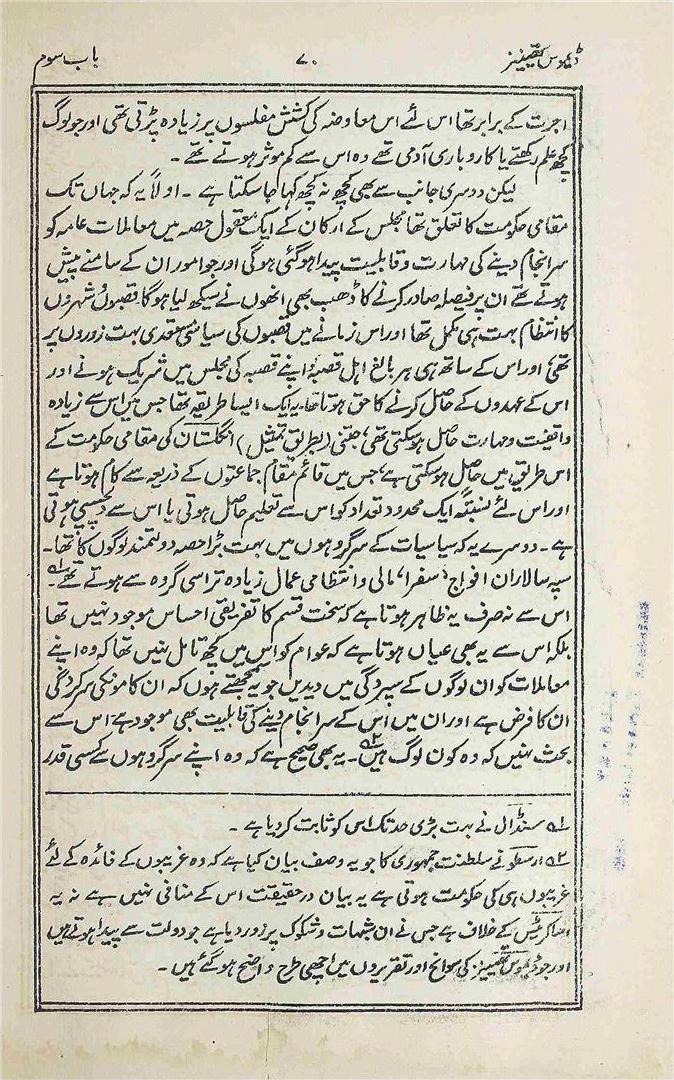 ڈیموس تھینیز ۷۰ باب سوم
اجرت کے برابر تھا اس لئے اس معاوضہ کی کشش مفلسوں پر زیادہ پڑتی تھی اور جو لوگ
کچھ علم رکھتے یا کاروباری آدمی تھے وہ اس سے کم موثر ہوتے تھے ۔
لیکن دوسری جانب سے بھی کچھ نہ کچھ کہا جاسکتا ہے ۔ اولاً یہ کہ جہاں تک
مقامی حکومت کا تعلق تھا مجلس کے ارکان کے ایک معقول حصہ میں معاملات عامہ کو
سر انجام دینے کی مہارت و قابلیت پیدا ہوگئی ہوگی اور جو امور ان کے سامنے پیش
ہوتے تھے ان پر فیصلہ صادر کرنے کا ڈھب بھی انھوں نے سیکھ لیا ہوگا قصبوں شہروں
کا انتظام بہت ہی مکمل تھا اور اس زمانے میں قصبوں کی سیاسی مستعدی بہت زوروں پر
تھی، اور اس کے ساتھ ہی ہر بالغ اہل قصبہ اپنے قصبہ کی مجلس میں شریک ہونے اور
اس کے عہدوں کے حاصل کرنے کا حق ہوتا تھا۔ یہ ایک ایسا طریقہ تھا جس میں اس سے زیادہ
واقفیت و مہارت حاصل ہوسکتی تھی، جتنی (بطریق تمثیل) انگلستان کی مقامی حکومت کے
اس طریق میں حاصل ہوسکتی ہے، جس میں قائم مقام جماعتوں کے ذریعہ سے کام ہوتا ہے
اور اس لئے نسبتہً ایک محدود تعداد کو اس سے تعلیم حاصل ہوتی یا اس سے دلچسپی ہوتی
ہے ۔ دوسرے یہ کہ سیاسیات کے سرگروہوں میں بہت بڑا حصہ دولتمند لوگوں کا تھا ۔
سپہ سالاران افواج، سفرا، مالی و انتظامی عمال زیادہ تر اسی گروہ سے ہوتے تھے ۔ ۱؎
اس سے نہ صرف یہ ظاہر ہوتا ہے کہ سخت قسم کا تفریقی احساس موجود نہیں تھا
بلکہ اس سے یہ بھی عیاں ہوتا ہے کہ عوام کو اس میں کچھ تامل نہیں تھا کہ وہ اپنے
معاملات کو ان لوگوں کے سپردگی میں دیدیں جو یہ سمجھتے ہوں کہ ان کاموں کی سرکردگی
ان کا فرض ہے اور ان میں اس کے سر انجام دینے کی قابلیت بھی موجود ہے اس سے
بحث نہیں کہ وہ کون لوگ ہیں ۲؎۔ یہ بھی صحیح ہے کہ وہ اپنے سرگروہوں سے کسی قدر
۱؎ سنڈال نے بہت بڑی حد تک اس کو ثابت کردیا ہے ۔
۲؎ ارسطو نے سلطنت جمہوری کا جو یہ وصف بیان کیا ہے کہ وہ غریبوں کے فائدہ کے لئے
غریبوں ہی کی حکومت ہوتی ہے یہ بیان درحقیقت اس کے منافی نہیں ہے نہ یہ
کے خلاف ہے جس نے ان شبہات و شکوک پر زور دیا ہے جو دولت سے پیدا ہوتے ہیں
اور جو ڈیموس تھینیز کی سوانح اور تقریروں میں اچھی طرح واضح ہوگئے ہیں ۔